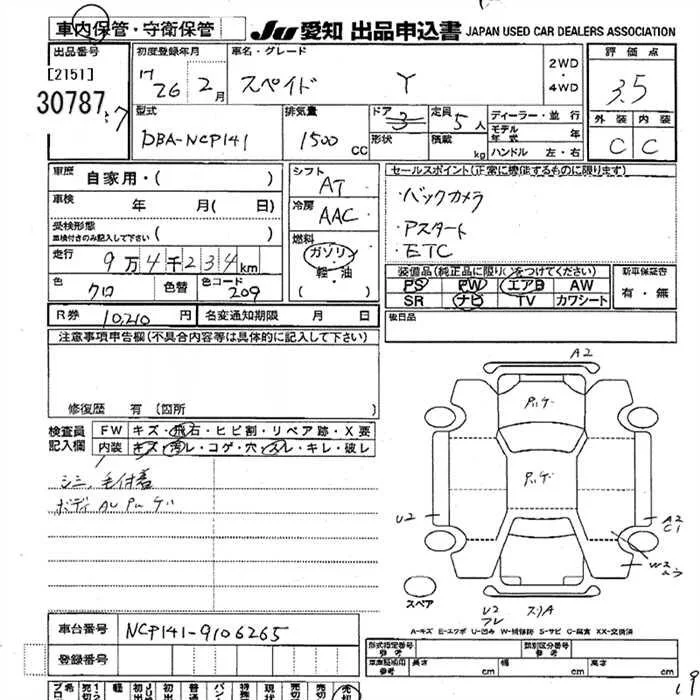 車内保管・守衛保管
JU 愛知 出品申込書 JAPAN USED CAR DEALERS ASSOCIATION
出品番号
[2151]
30787
初度登録年月
26年2月
車名・グレード
スペイド Y
2WD・4WD
評価点
3.5
外装 内装
C C
型式
DBA-NCP141
排気量
1500 CC
ドア 3
形状
定員 5人
積載 kg
ディーラー・並行
モデル年式 年
ハンドル 左・右
車歴
自家用・( )
車検
年 月( 日)
受検形態
車検付きのみ記入して下さい ( )
走行
9万4千234km
色
クロ
色替
色コード
209
シフト
AT
冷房
AAC
燃料
ガソリン
軽・油
( )
セールスポイント(正常に機能するものに限ります)
・バックカメラ
・Pスタート
・ETC
装備品(純正品に限り○をつけてください)
PS PW エアB AW
SR ナビ TV カワシート
新車保証書
有・無
R券 10,210 円
名変通知期限 月 日
後日品
注意事項申告欄(不具合内容等は具体的に記入して下さい)
修復歴 有(箇所
検査員記入欄
FW キズ・飛石・ヒビ割・リペア跡・X要
内装 キズ・汚レ・コゲ・穴・スレ・キレ・破レ
シミ、毛付着
A2
U2
A2
C1
W2
スペア
U2
スリA
A-キズ E-エクボ U-凹み W-補修跡 S-サビ C-腐食 XX-交換済
車台番号 NCP141-9106265
登録番号
型式指定番号 参考
類別区分番号 参考
車庫証明用 参考 長さ cm 幅 cm 高さ cm